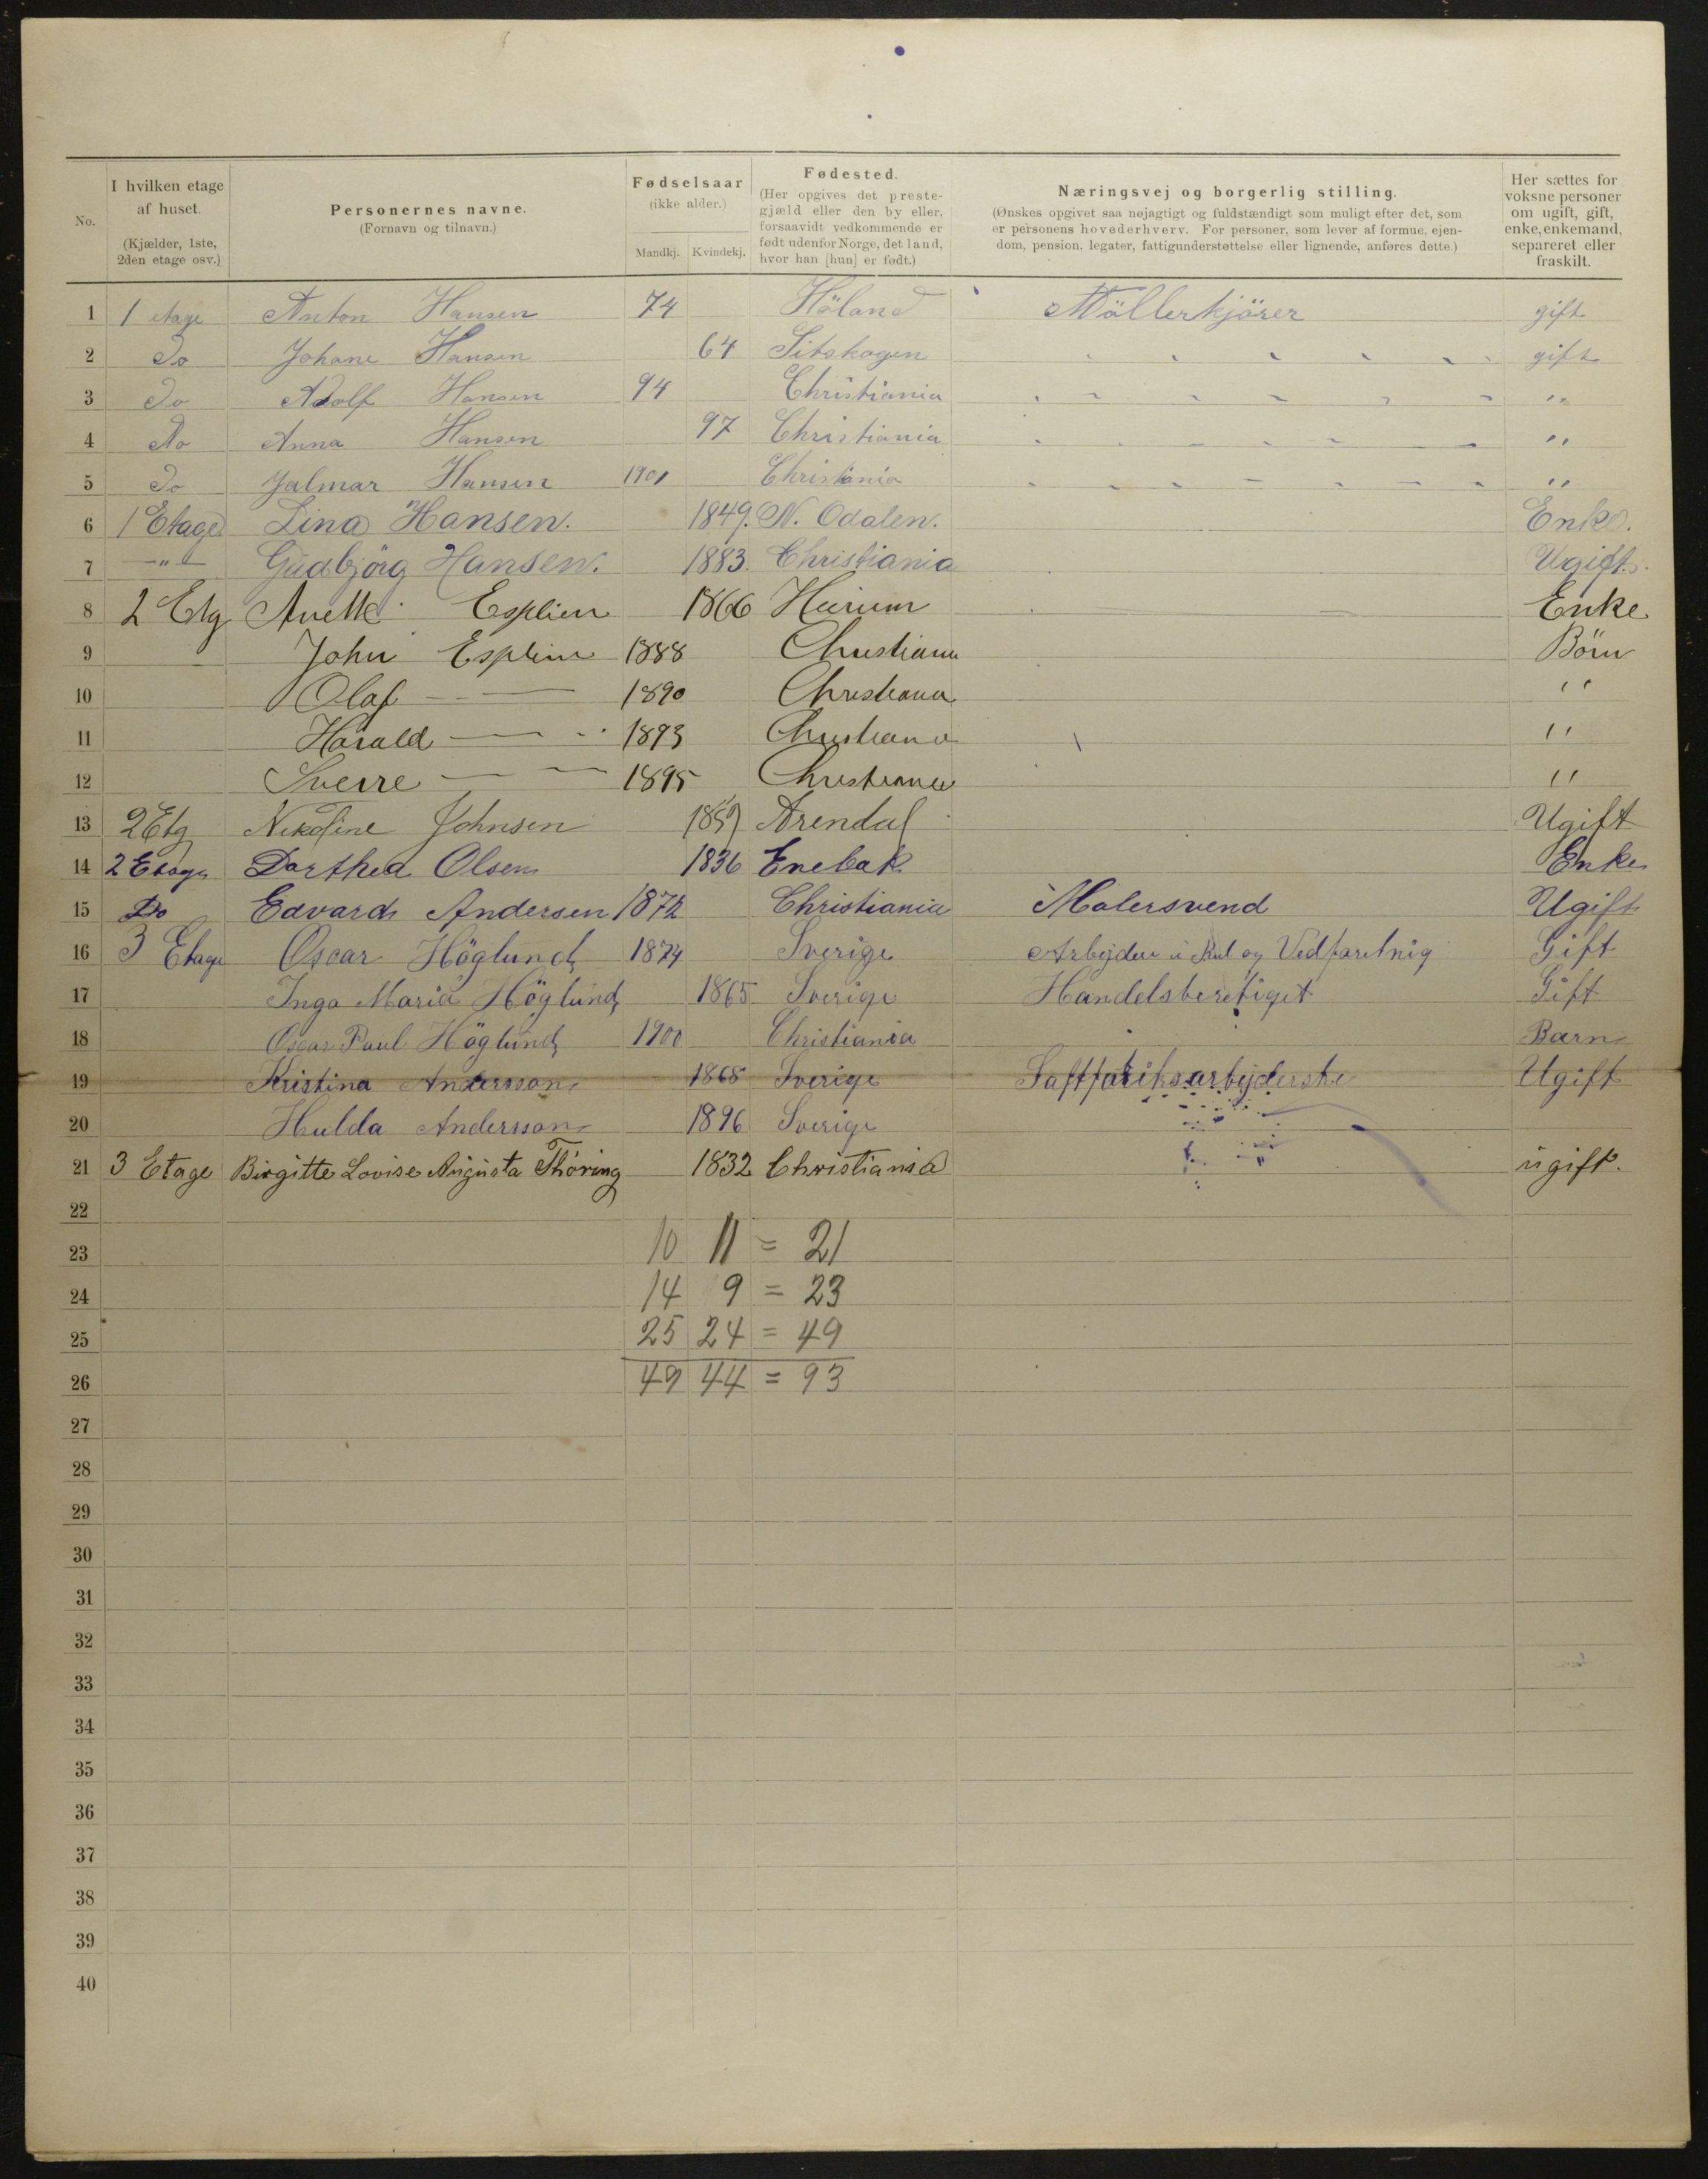 No.
I hvilken etage
af huset.
(Kjælder, 1ste,
2den etage osv.)
Personernes navne.
(Fornavn og tilnavn.)
Fødselsaar
(ikke alder.)
Mandkj. Kvindekj.
Fødested.
(Her opgives det preste-
gjæld eller den by eller,
forsaavidt vedkommende er
født udenfor Norge, det land,
hvor han [hun] er født.)
Næringsvej og borgerlig stilling.
(Ønskes opgivet saa nøjagtigt og fuldstændigt som muligt efter det, som
er personens hovederhverv. For personer, som lever af formue, ejen-
dom, pension, legater, fattigunderstøttelse eller lignende, anføres dette.)
Her sættes for
voksne personer
om ugift, gift,
enke, enkemand,
separeret eller
fraskilt.
1 1 etage Anton Hansen 74 Höland Möllerkjörer gift
2 Do Johane Hansen 64 Sitskogen gift
3 Do Adolf Hansen 94 Christiania "
4 Do Anna Hansen 97 Christiania "
5 Do Jalmar Hansen 1901 Christiania "
6 1 Etage Lina Hansen. 1849. N. Odalen. Enke.
7 — " — Gudbjörg Hansen. 1883. Christiania Ugift.
8 2 Etg Anette Esplien 1866 Hurum Enke
9 John Esplien 1888 Christiania Börn
10 Olaf — — 1890 Christiania "
11 Harald — — 1893 Christiania "
12 Sverre — — 1895 Christiania "
13 2 Etg Nikoline Johnsen Arendal Ugift
14 2 Etage Dorthea Olsen 1836 Enebak Enke
15 Do Edvard Andersen 1872 Christiania Malersvend Ugift
16 3 Etage Oscar Höglund 1874 Sverige Arbejder i Kul og Vedforetnig Gift
17 Inga Maria Höglund 1865 Sverige Handelsberetiget Gift
18 Oscar Paul Höglund 1900 Christiania Barn
19 Kristina Andersson 1868 Sverige Saftfabriksarbejderske Ugift
20 Hulda Andersson 1896 Sverige
21 3 Etage Birgitte Lovise Augusta Thoring 1832 Christiania ugift.
22
23 10 11 = 21
24 14 9 = 23
25 25 24 = 49
26 49 44 = 93
27
28
29
30
31
32
33
34
35
36
37
38
39
40